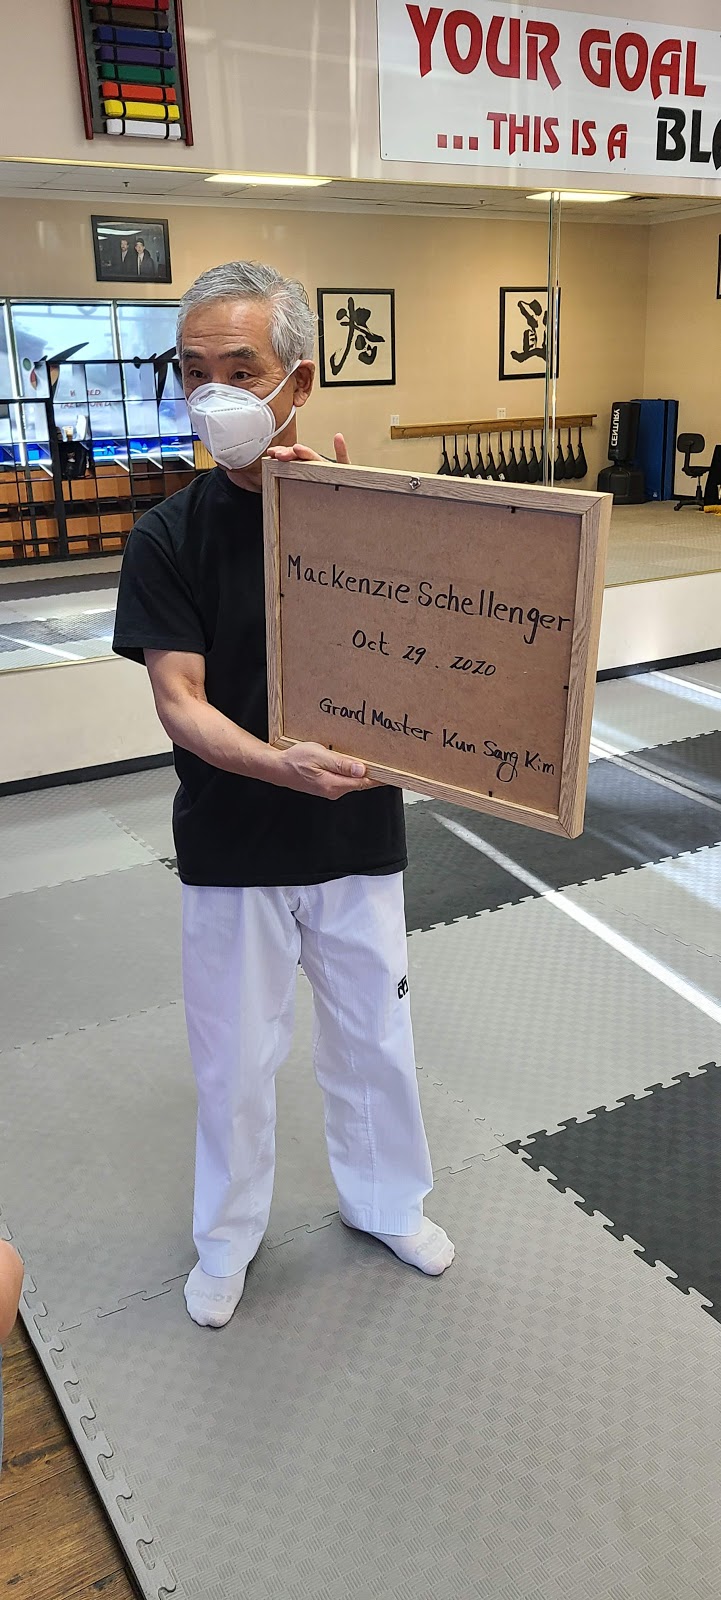 YOUR GOAL
...THIS IS A BL
CENTURY
Mackenzie Schellenger
Oct 29. 2020
Grand Master Kun Sang Kim